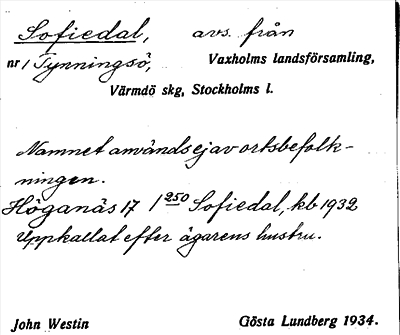 Sofiedal, avs. från
nr 1 Tynningsö, Vaxholms landsförsamling,
Värmdö skg, Stockholms l.
Namnet användsejavortsbefolk-
ningen.
Höganäs 17 1250 Sofiedal, kb 1932
Uppkallat efter ägarens hustru.
John Westin Gösta Lundberg 1934.